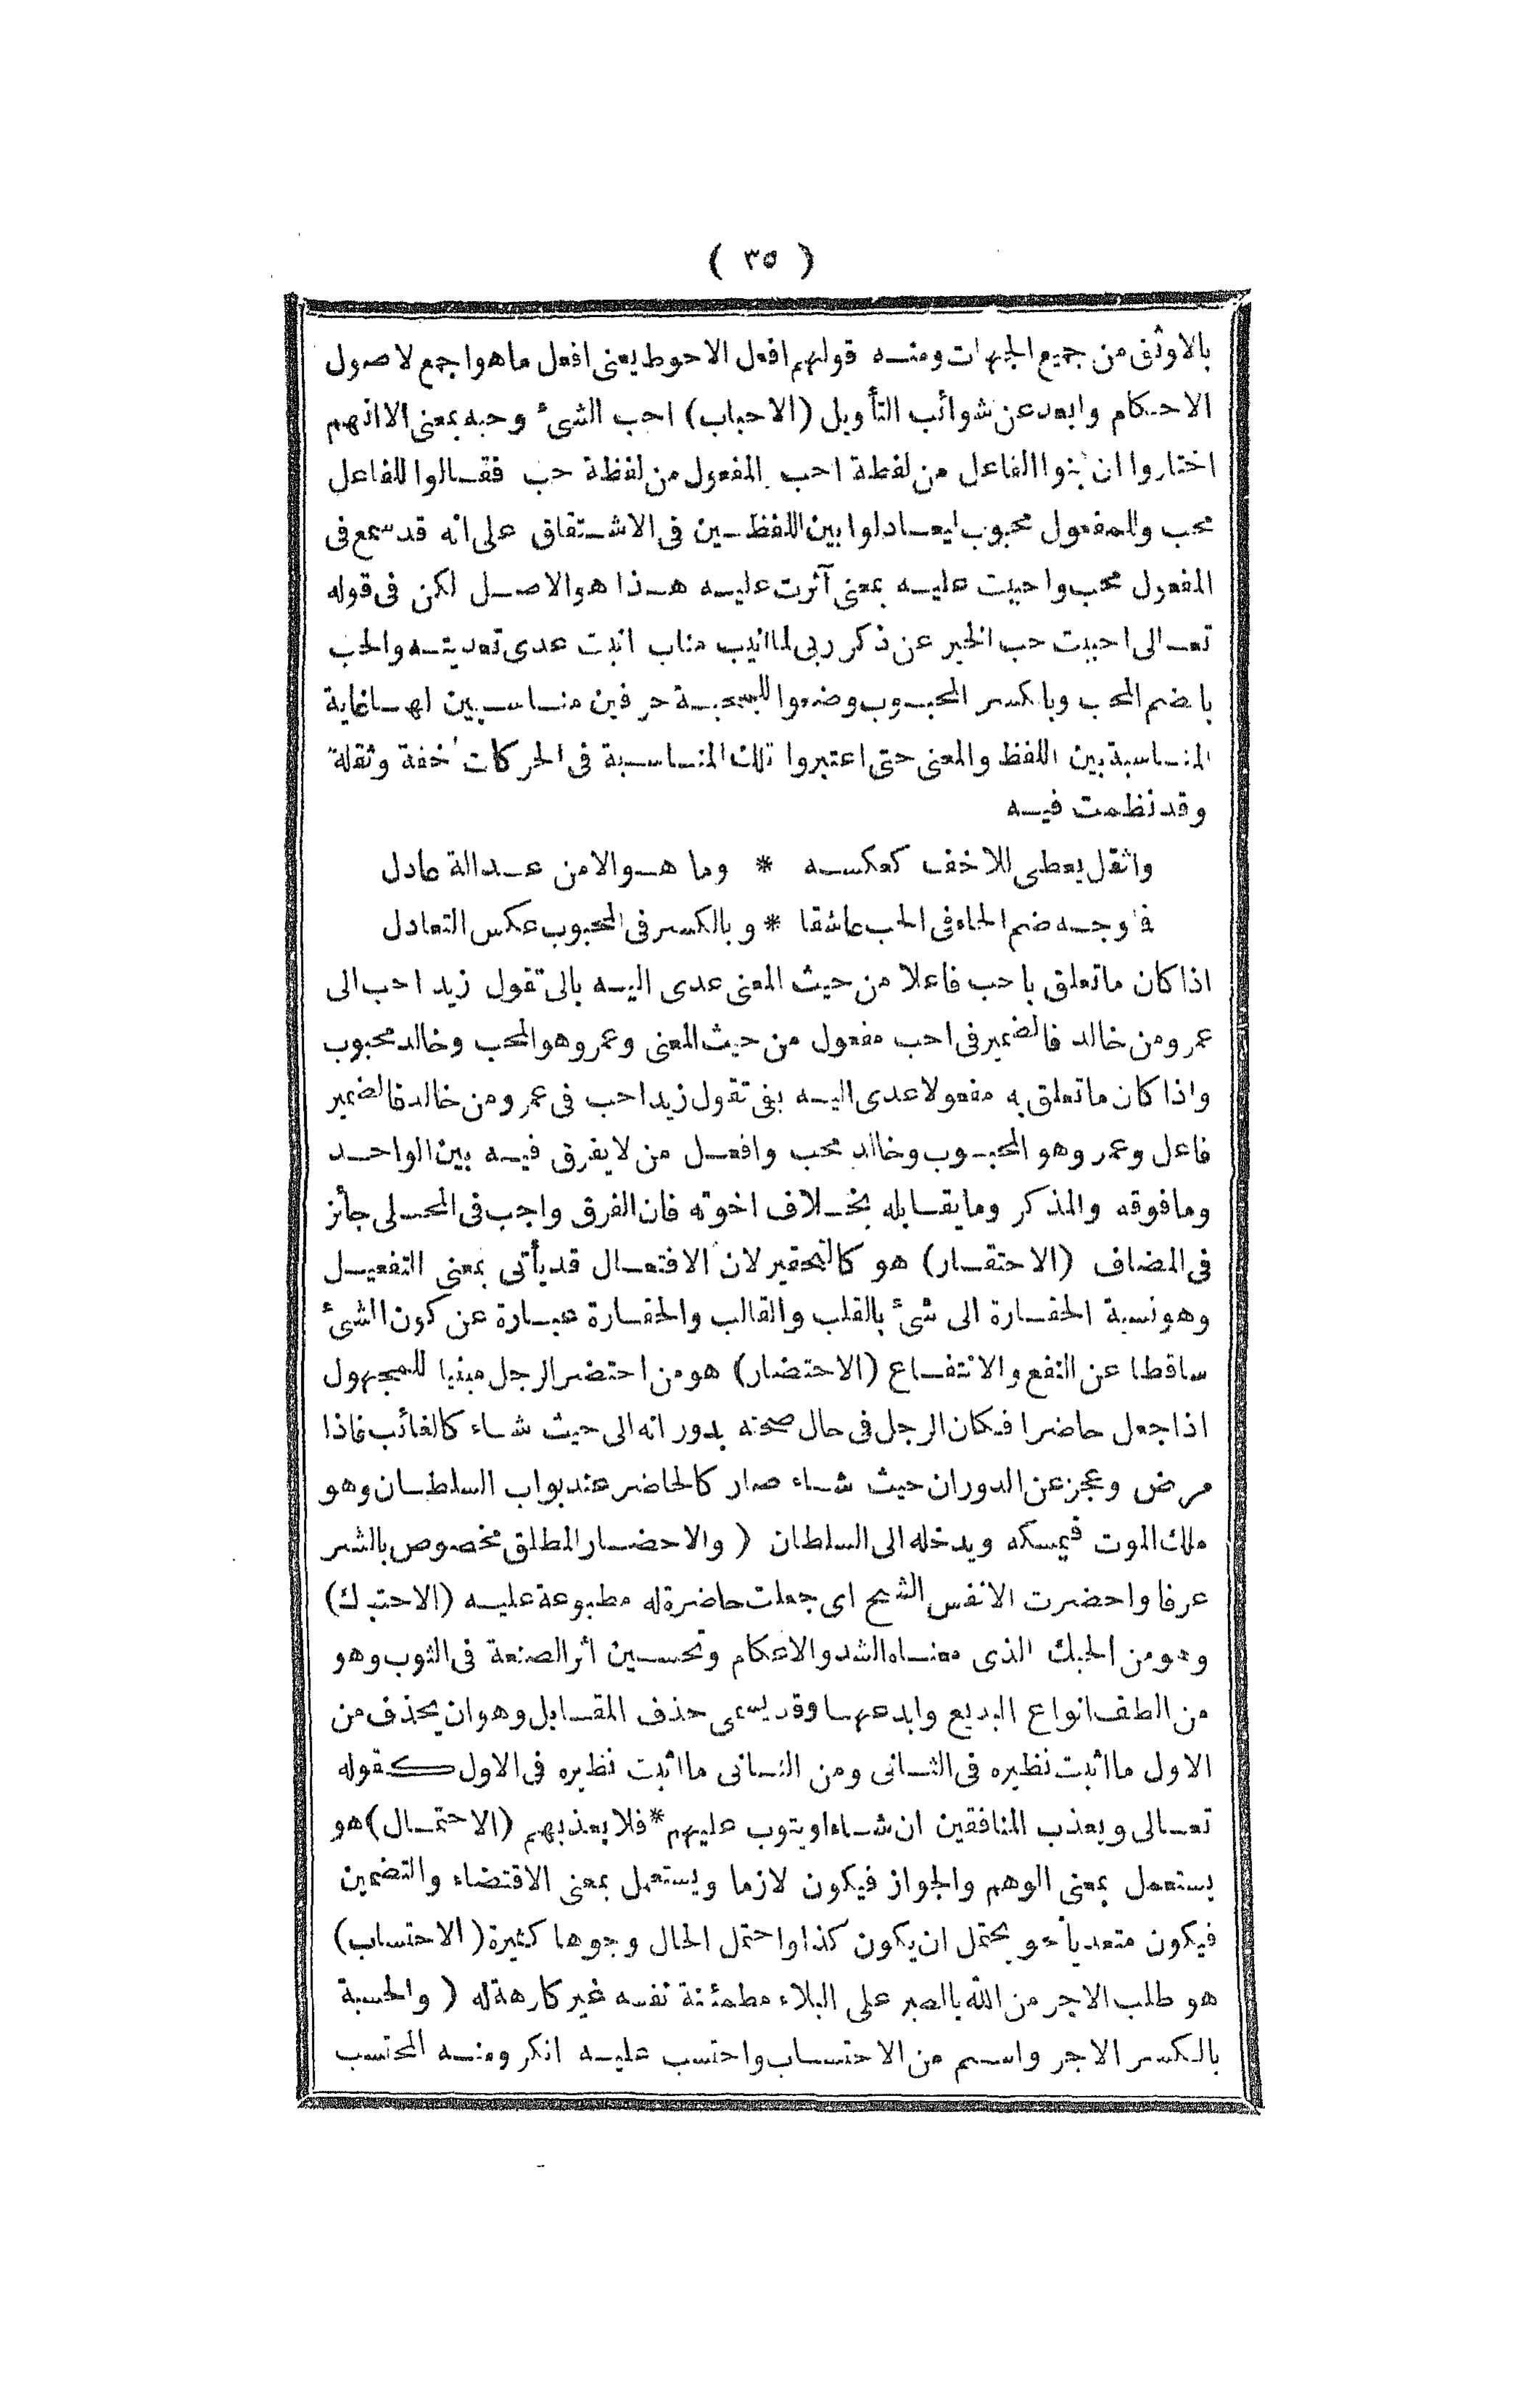 ( ٣٥ )
بالاوثق من جميع الجهات ومنه قولهم افعل الاحوط يعنى افعل ما هو اجمع لاصول
الاحكام وابعد عن شوائب التأويل (الاحباب) احب الشئ وحبه بمعنى الا انهم
اختاروا ان بنوا الفاعل من لفظة احب المفعول من لفظة حب فقالوا للفاعل
محب وللمفعول محبوب ليعادلوا بين اللفظين فى الاشتقاق على انه قد سمع فى
المفعول محب واحببت عليه بمعنى آثرت عليه هذا هو الاصل لكن فى قوله
تعالى احببت حب الخير عن ذكر ربى لما انيب مناب انبت عدى تعديته والحب
بالضم المحب وبالكسر المحبوب وضعوا للمحبة حرفين مناسبين لها غاية
المناسبة بين اللفظ والمعنى حتى اعتبروا تلك المناسبة فى الحركات خفة وثقلة
وقد نظمت فيه
واثقل يعطى للاخف كعكسه * وما هو الا من عدالة عادل
فا وجه ضم الحاء فى الحب عاشقا * وبالكسر فى المحبوب عكس التعادل
اذا كان ما تعلق باحب فاعلا من حيث المعنى عدى اليه بالى تقول زيد احب الى
عمرو من خالد فالضمير فى احب مفعول من حيث المعنى وعمرو هو المحب وخالد محبوب
واذا كان ما تعلق به مفعولا عدى اليه بفى تقول زيد احب فى عمرو من خالد فالضمير
فاعل وعمرو هو المحبوب وخالد محب وافعل من لا يفرق فيه بين الواحد
وما فوقه والمذكر وما يقابله بخلاف اخوته فان الفرق واجب فى المحلى جائز
فى المضاف (الاحتقار) هو كالتحقير لان الافتعال قد يأتى بمعنى التفعيل
وهو نسبة الحقارة الى شئ بالقلب والقالب والحقارة عبارة عن كون الشئ
ساقطا عن النفع والانتفاع (الاحتضار) هو من احتضر الرجل مبنيا للمجهول
اذا جعل حاضرا فكان الرجل فى حال صحته بدورانه الى حيث شاء كالغائب فاذا
مرض وعجز عن الدوران حيث شاء صار كالحاضر عند بواب السلطان وهو
ملك الموت فيمسكه ويدخله الى السلطان (والاحضار المطلق مخصوص بالشر
عرفا واحضرت الانفس الشح اى جعلت حاضرة له مطبوعة عليه (الاحتبك)
وهو من الحبك الذى معناه الشد والاحكام وتحسين اثر الصنعة فى الثوب وهو
من الطف انواع البديع وابدعها وقد يسمى حذف المقابل وهو ان يحذف من
الاول ما اثبت نظيره فى الثانى ومن الثانى ما اثبت نظيره فى الاول كقوله
تعالى ويعذب المنافقين ان شاء او يتوب عليهم * فلا يعذبهم (الاحتمال) هو
يستعمل بمعنى الوهم والجواز فيكون لازما ويستعمل بمعنى الاقتضاء والتضمين
فيكون متعديا نحو يحتمل ان يكون كذا واحتمل الحال وجوها كثيرة (الاحتساب)
هو طلب الاجر من الله بالصبر على البلاء مطمئنة نفسه غير كارهة له (والحسبة
بالكسر الاجر واسم من الاحتساب واحتسب عليه انكر ومنه المحتسب